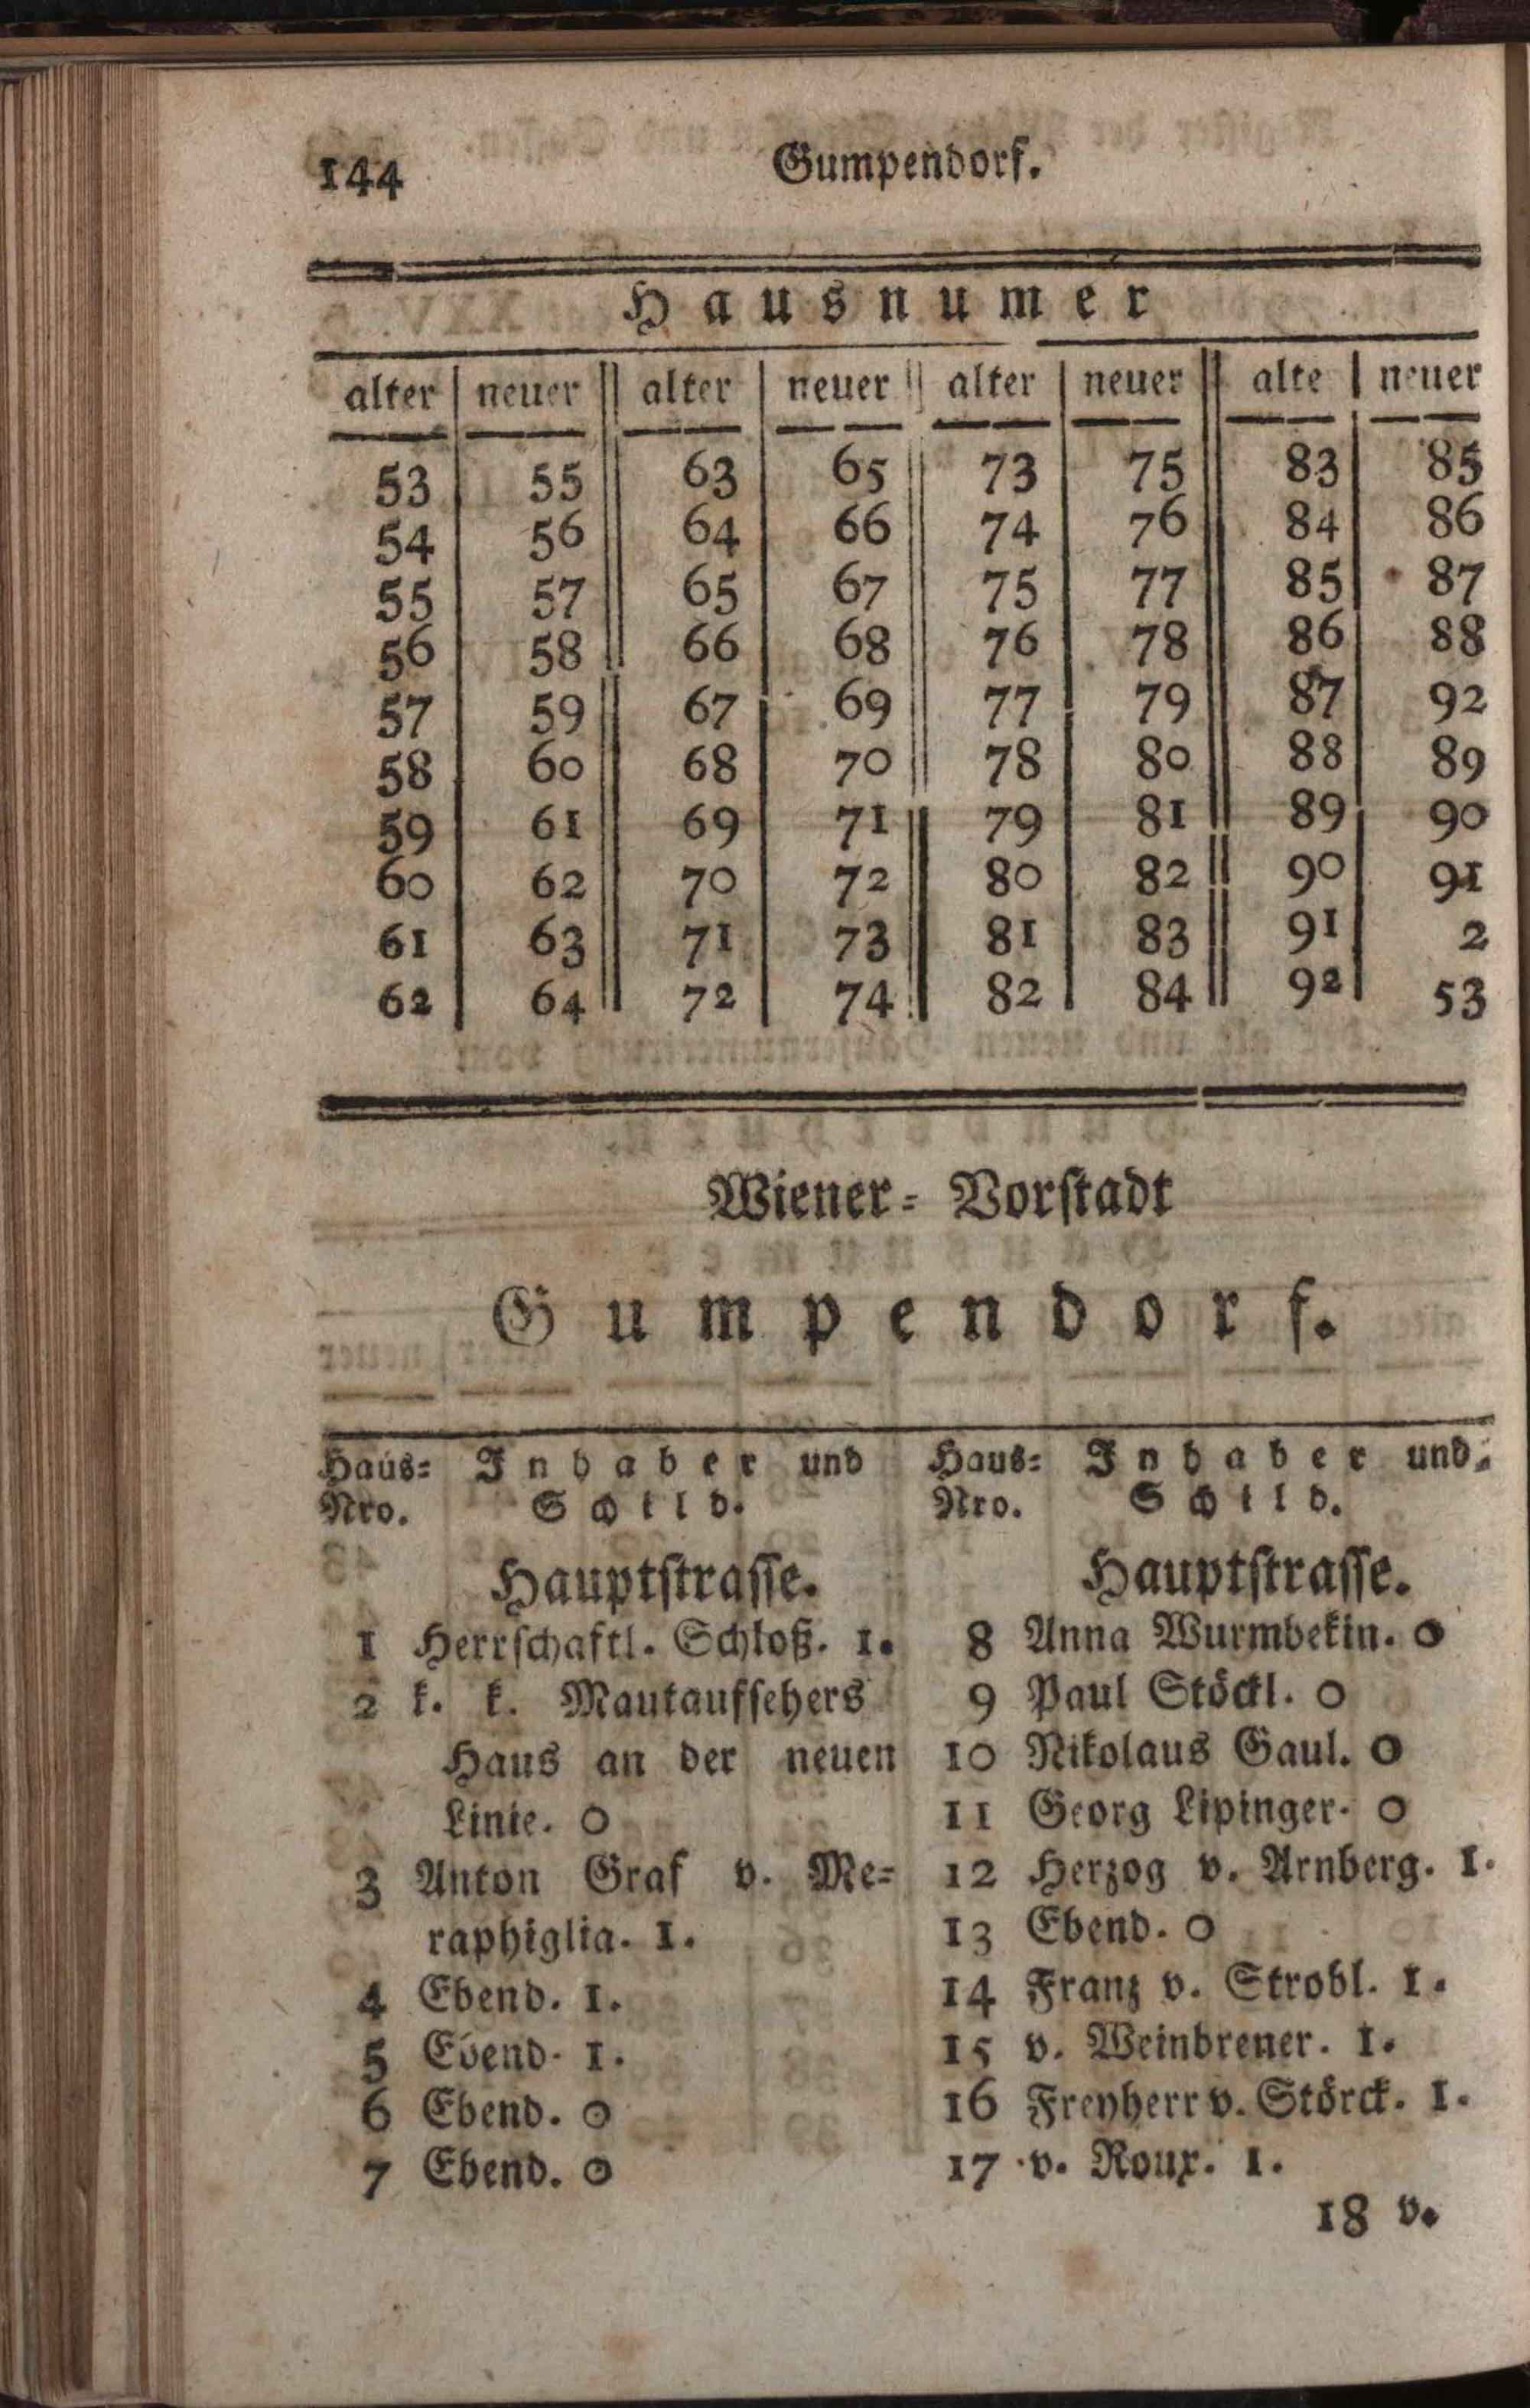 144 Gumpendorf.
Hausnumer
alter neuer alter neuer alter neuer alte neuer
53 55 63 65 73 75 83 85
54 56 64 66 74 76 84 86
55 57 65 67 75 77 85 87
56 58 66 68 76 78 86 88
57 59 67 69 77 79 87 92
58 60 68 70 78 80 88 89
59 61 69 71 79 81 89 90
60 62 70 72 80 82 90 91
61 63 71 73 81 83 91 2
62 64 72 74 82 84 92 53
Wiener-Vorstadt
Gumpendorf.
Haus-
Nro.
Inhaber und
Schild.
Hauptstrasse.
1 Herrschaftl. Schloß. 1.
2 k. k. Mautaufsehers
Haus an der neuen
Linie. 0
3 Anton Graf v. Me-
raphiglia. 1.
4 Ebend. 1.
5 Ebend. 1.
6 Ebend. 0
7 Ebend. 0
Haus-
Nro.
Inhaber und
Schild.
Hauptstrasse.
8 Anna Wurmbekin. 0
9 Paul Stöckl. 0
10 Nikolaus Gaul. 0
11 Georg Lipinger. 0
12 Herzog v. Arnberg. 1.
13 Ebend. 0
14 Franz v. Strobl. 1.
15 v. Weinbrener. 1.
16 Freyherr v. Störck. 1.
17 v. Roux. 1.
18 v.